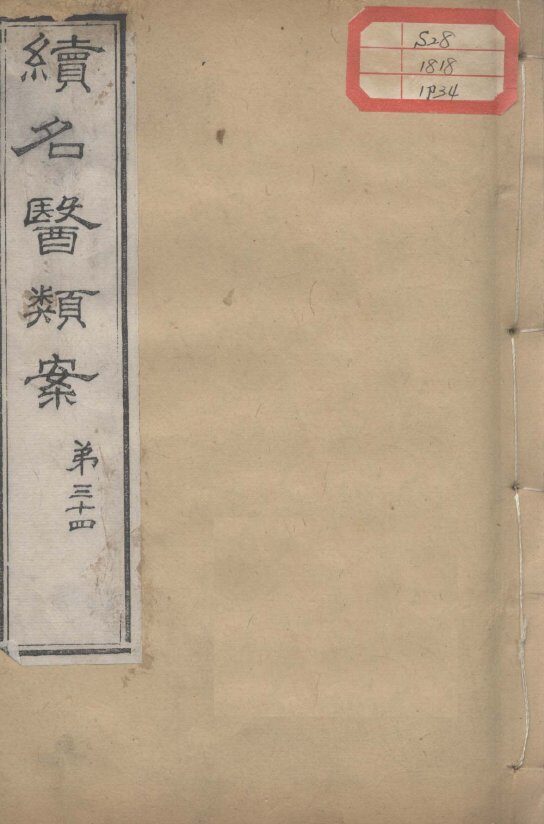 續名醫類案
弟三十四
S28
1818
1P34